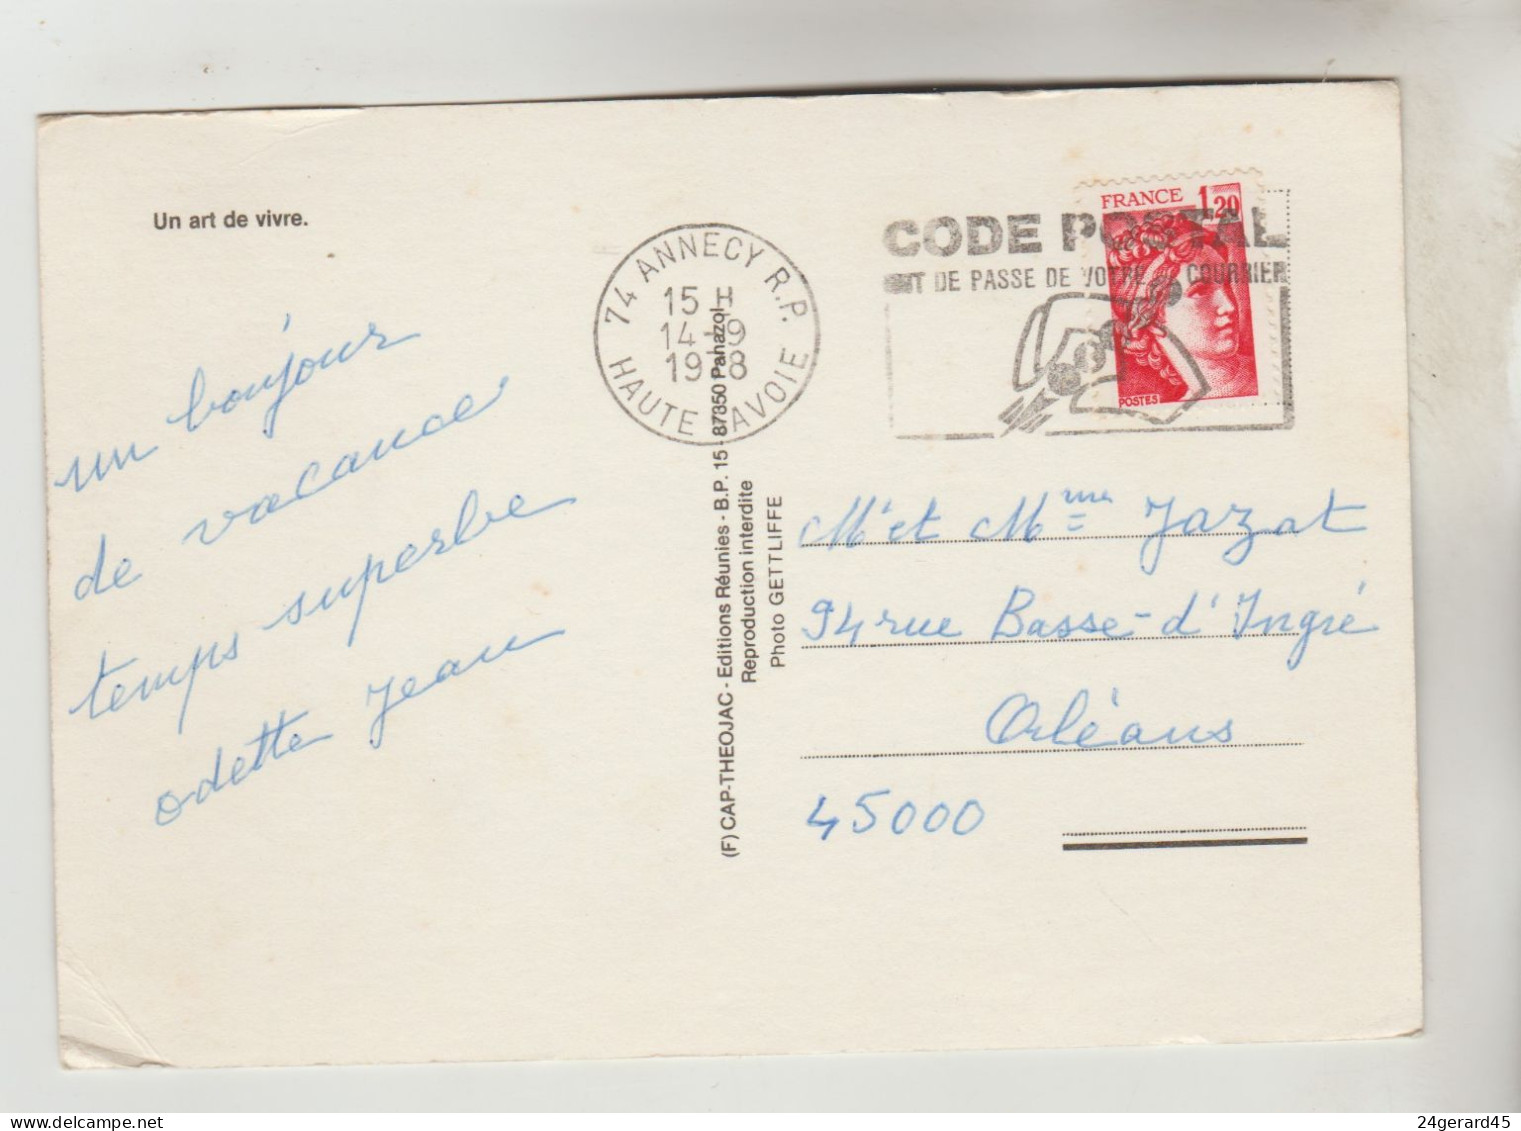 Un art de vivre.
un bonjour
de vacance
temps superbe
odette Jean
74 ANNECY R.P.
15 H
14-9
1978
HAUTE SAVOIE
CODE POSTAL
MOT DE PASSE DE VOTRE COURRIER
FRANCE 1,20
POSTES
(F) CAP-THEOJAC - Editions Réunies - B.P. 15 - 87350 Panazol
Reproduction interdite
Photo GETTLIFFE
Mr et Mme Jazat
94 rue Basse-d'Ingré
Orléans
45000
24gerard45